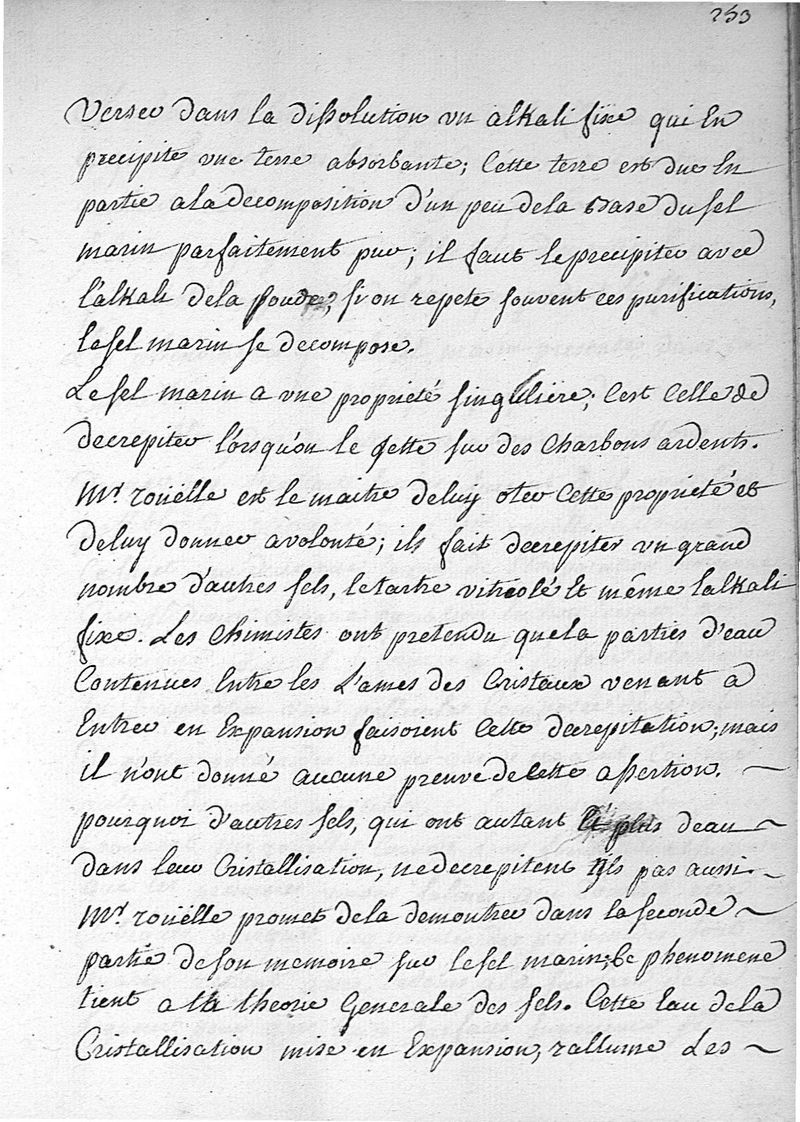 253
Verser dans la dissolution un alkali fixe qui En
precipite une terre absorbante; Cette terre est due En
partie a la decomposition d'un peu de la Base du sel
marin parfaitement pur; il faut le precipiter avec
l'alkali de la soude; si on repete souvent ces purifications,
le sel marin se decompose.
Le sel marin a une proprieté singuliere; C'est Celle de
decrepiter lorsqu'on le jette sur des Charbons ardents.
Mr. roüelle est le maitre de luy oter Cette proprieté et
de luy donner a volonté; ils fait decrepiter un grand
nombre d'autres sels, le tartre vitriolé Et même l'alkali
fixe. Les Chimistes ont pretendu que la parties d'eau
Contenues Entre les L'ames des Cristaux venant a
Entrer en Expansion faisoient Cette decrepitation; mais
il n'ont donné aucune preuve de Cette assertion. ~
pourquoi d'autres sels, qui ont autant plus d'eau ~
dans leur Cristallisation, ne decrepitent ils pas aussi. ~
Mr. roüelle promet de la demontrer dans la seconde ~
partie de son memoire sur le sel marin; Ce phenomene
tient a la theorie Generale des sels. Cette Eau de la
Cristallisation mise en Expansion, rallume Les ~